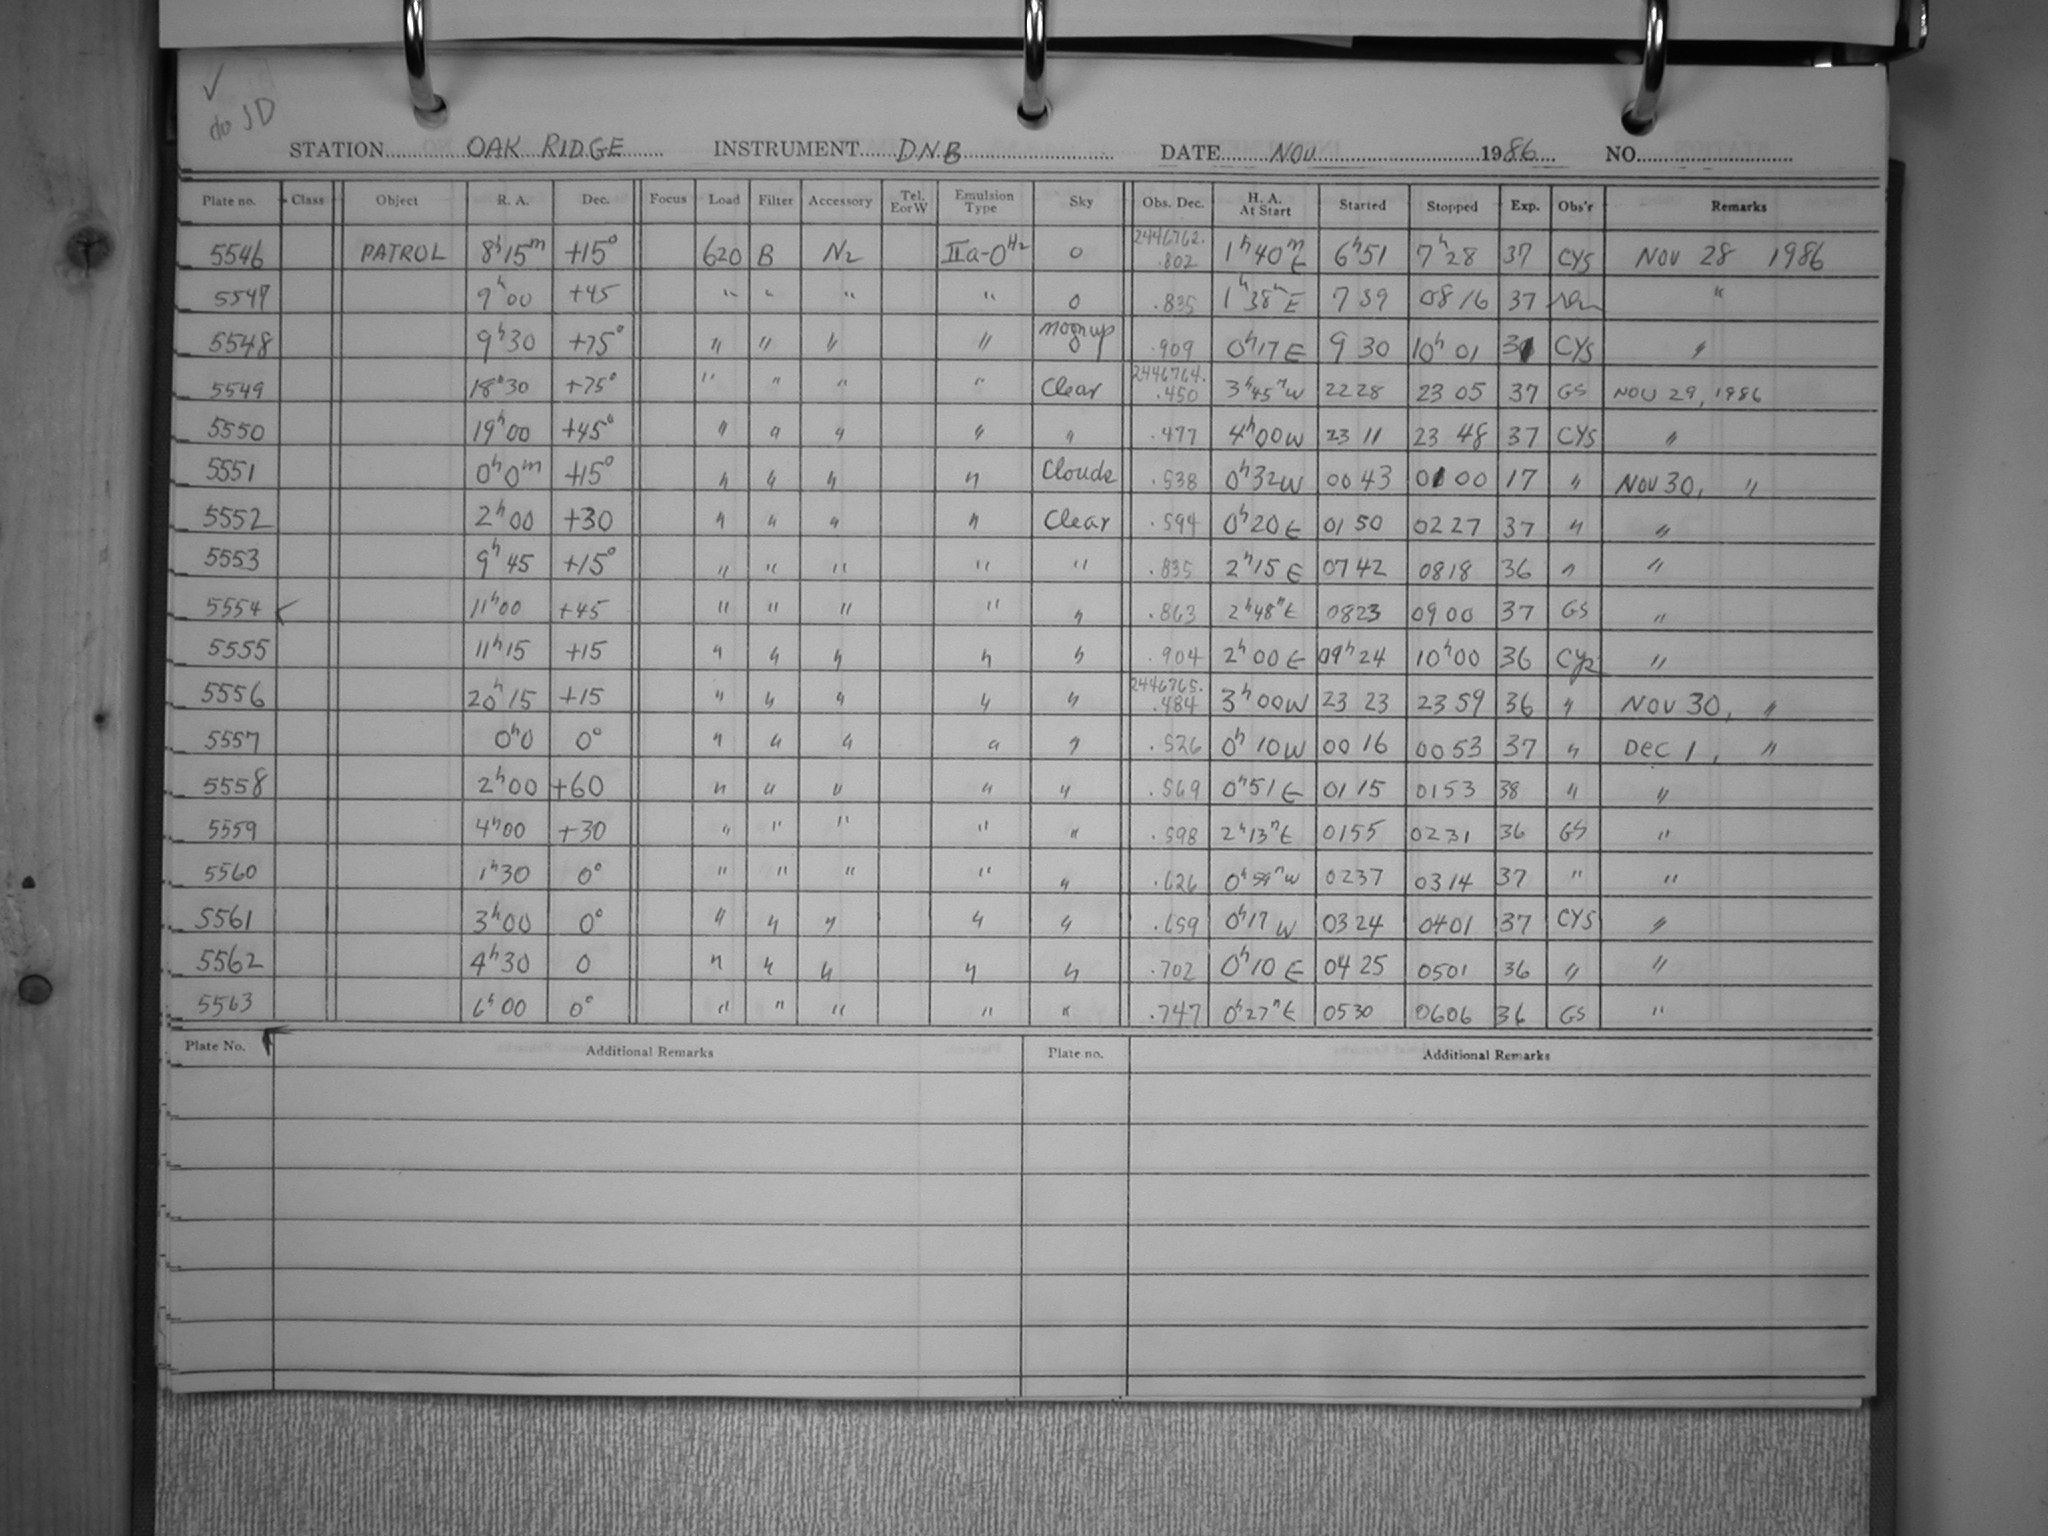 ✓
do JD
STATION OAK RIDGE INSTRUMENT D.N.B DATE NOV 1986 NO.
Plate no. Class Object R. A. Dec. Focus Load Filter Accessory Tel. E or W Emulsion Type Sky Obs. Dec. H. A. At Start Started Stopped Exp. Obs'r Remarks
5546 PATROL 8h15m +15° 620 B N2 IIa-O H2 0 2446762. .802 1h40m E 6h51 7h28 37 CYS NOV 28 1986
5547 9h00 +45 " " " " 0 .835 1h38m E 7 39 08 16 37 "
5548 9h30 +75° " " " " moon up 0 .909 0h17 E 9 30 10h 01 31 CYS "
5549 18h30 +75° " " " " Clear 2446764. .450 3h45m W 22 28 23 05 37 GS NOV 29, 1986
5550 19h00 +45° " " " " " .477 4h00 W 23 11 23 48 37 CYS "
5551 0h0m +15° " " " " Clouds .538 0h32 W 00 43 01 00 17 " NOV 30, "
5552 2h00 +30 " " " " Clear .594 0h20 E 01 50 02 27 37 " "
5553 9h45 +15° " " " " " .835 2h15 E 07 42 08 18 36 " "
5554 11h00 +45 " " " " " .863 2h48m E 08 23 09 00 37 GS "
5555 11h15 +15 " " " " " .904 2h00 E 09h24 10h00 36 CYS "
5556 20h15 +15 " " " " " 2446765. .484 3h00 W 23 23 23 59 36 " NOV 30, "
5557 0h0 0° " " " " " .526 0h10 W 00 16 00 53 37 " DEC 1, "
5558 2h00 +60 " " " " " .569 0h51 E 01 15 01 53 38 " "
5559 4h00 +30 " " " " " .598 2h13m E 01 55 02 31 36 GS "
5560 1h30 0° " " " " " .626 0h59m W 02 37 03 14 37 " "
5561 3h00 0° " " " " " .659 0h17 W 03 24 04 01 37 CYS "
5562 4h30 0 " " " " " .702 0h10 E 04 25 05 01 36 " "
5563 6h00 0° " " " " " .747 0h27m E 05 30 06 06 36 GS "
Plate No. Additional Remarks Plate no. Additional Remarks